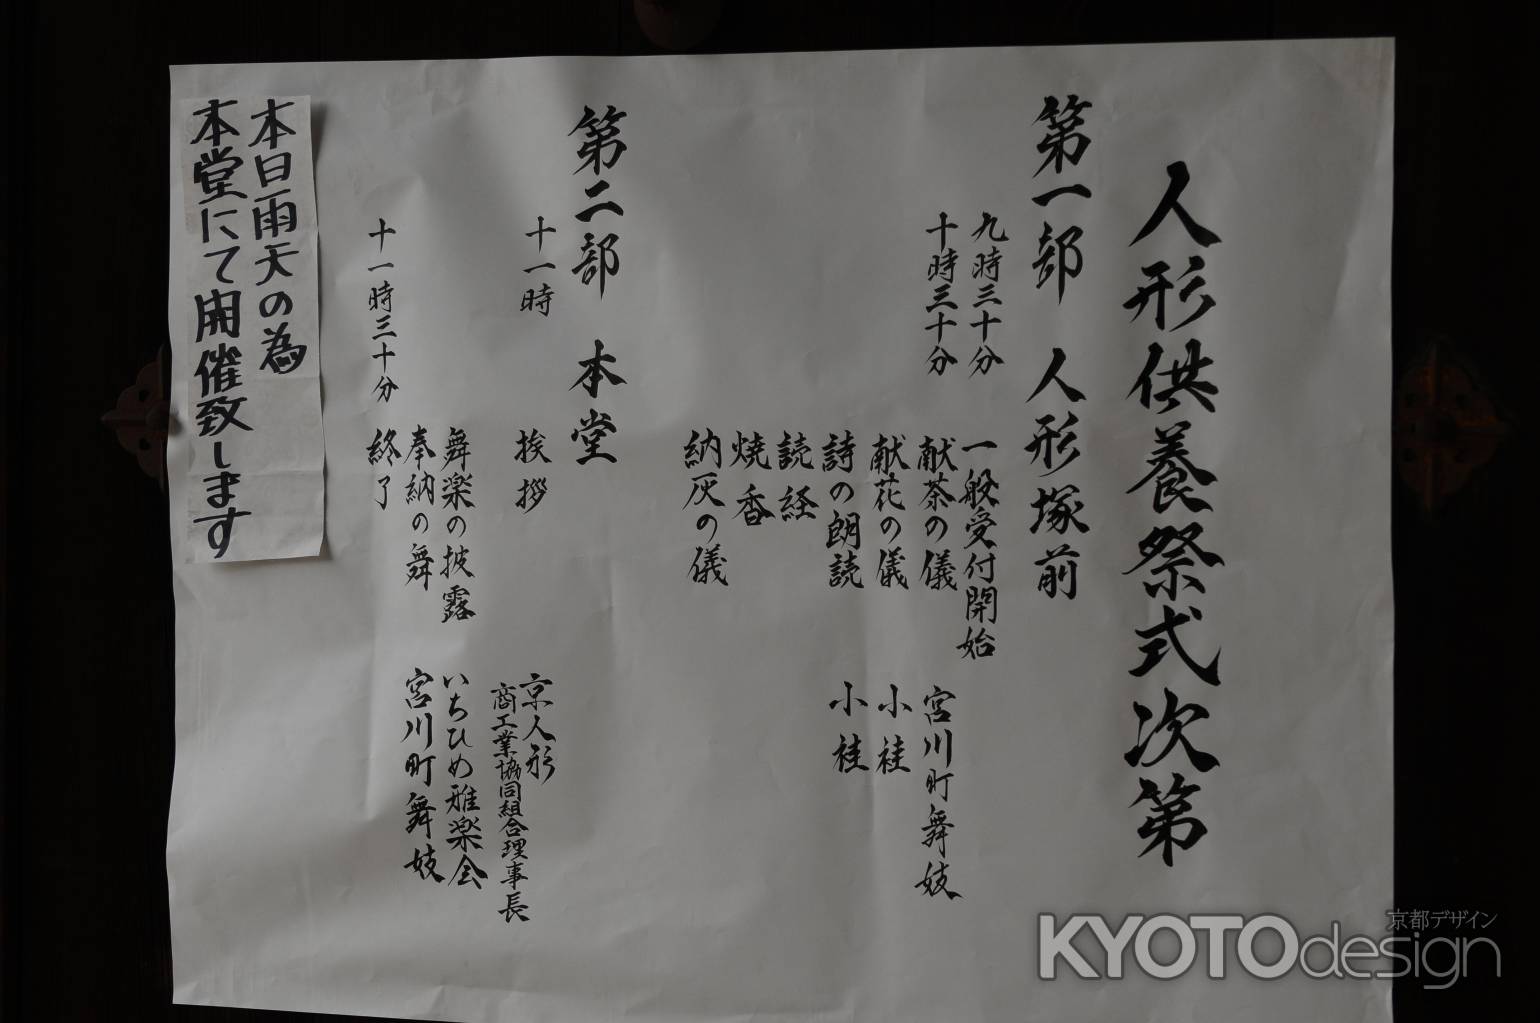 人形供養祭式次第
第一部 人形塚前
九時三十分 一般受付開始
十時三十分 献茶の儀 宮川町舞妓
献花の儀 小袿
詩の朗読 小袿
読経
焼香
納灰の儀
第二部 本堂
十一時 挨拶 京人形
商工業協同組合理事長
舞楽の披露 いちひめ雅楽会
奉納の舞 宮川町舞妓
十一時三十分 終了
本日雨天の為
本堂にて開催致します
京都デザイン
KYOTOdesign